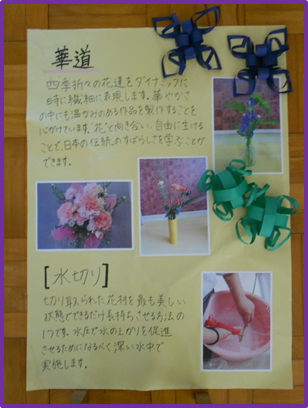 華道
四季折々の花達をダイナミックに
時に繊細に表現します。華やかさ
の中にも温かみのある作品を製作することを
心がけています。花と向き合い、自由に生ける
ことで、日本の伝統のすばらしさを学ぶことが
できます。
[水切り]
切り取られた花材を最も美しい
状態でできるだけ長持ちさせる方法の
1つです。水圧で水の上がりを促進
させるためになるべく深い水中で
実施します。